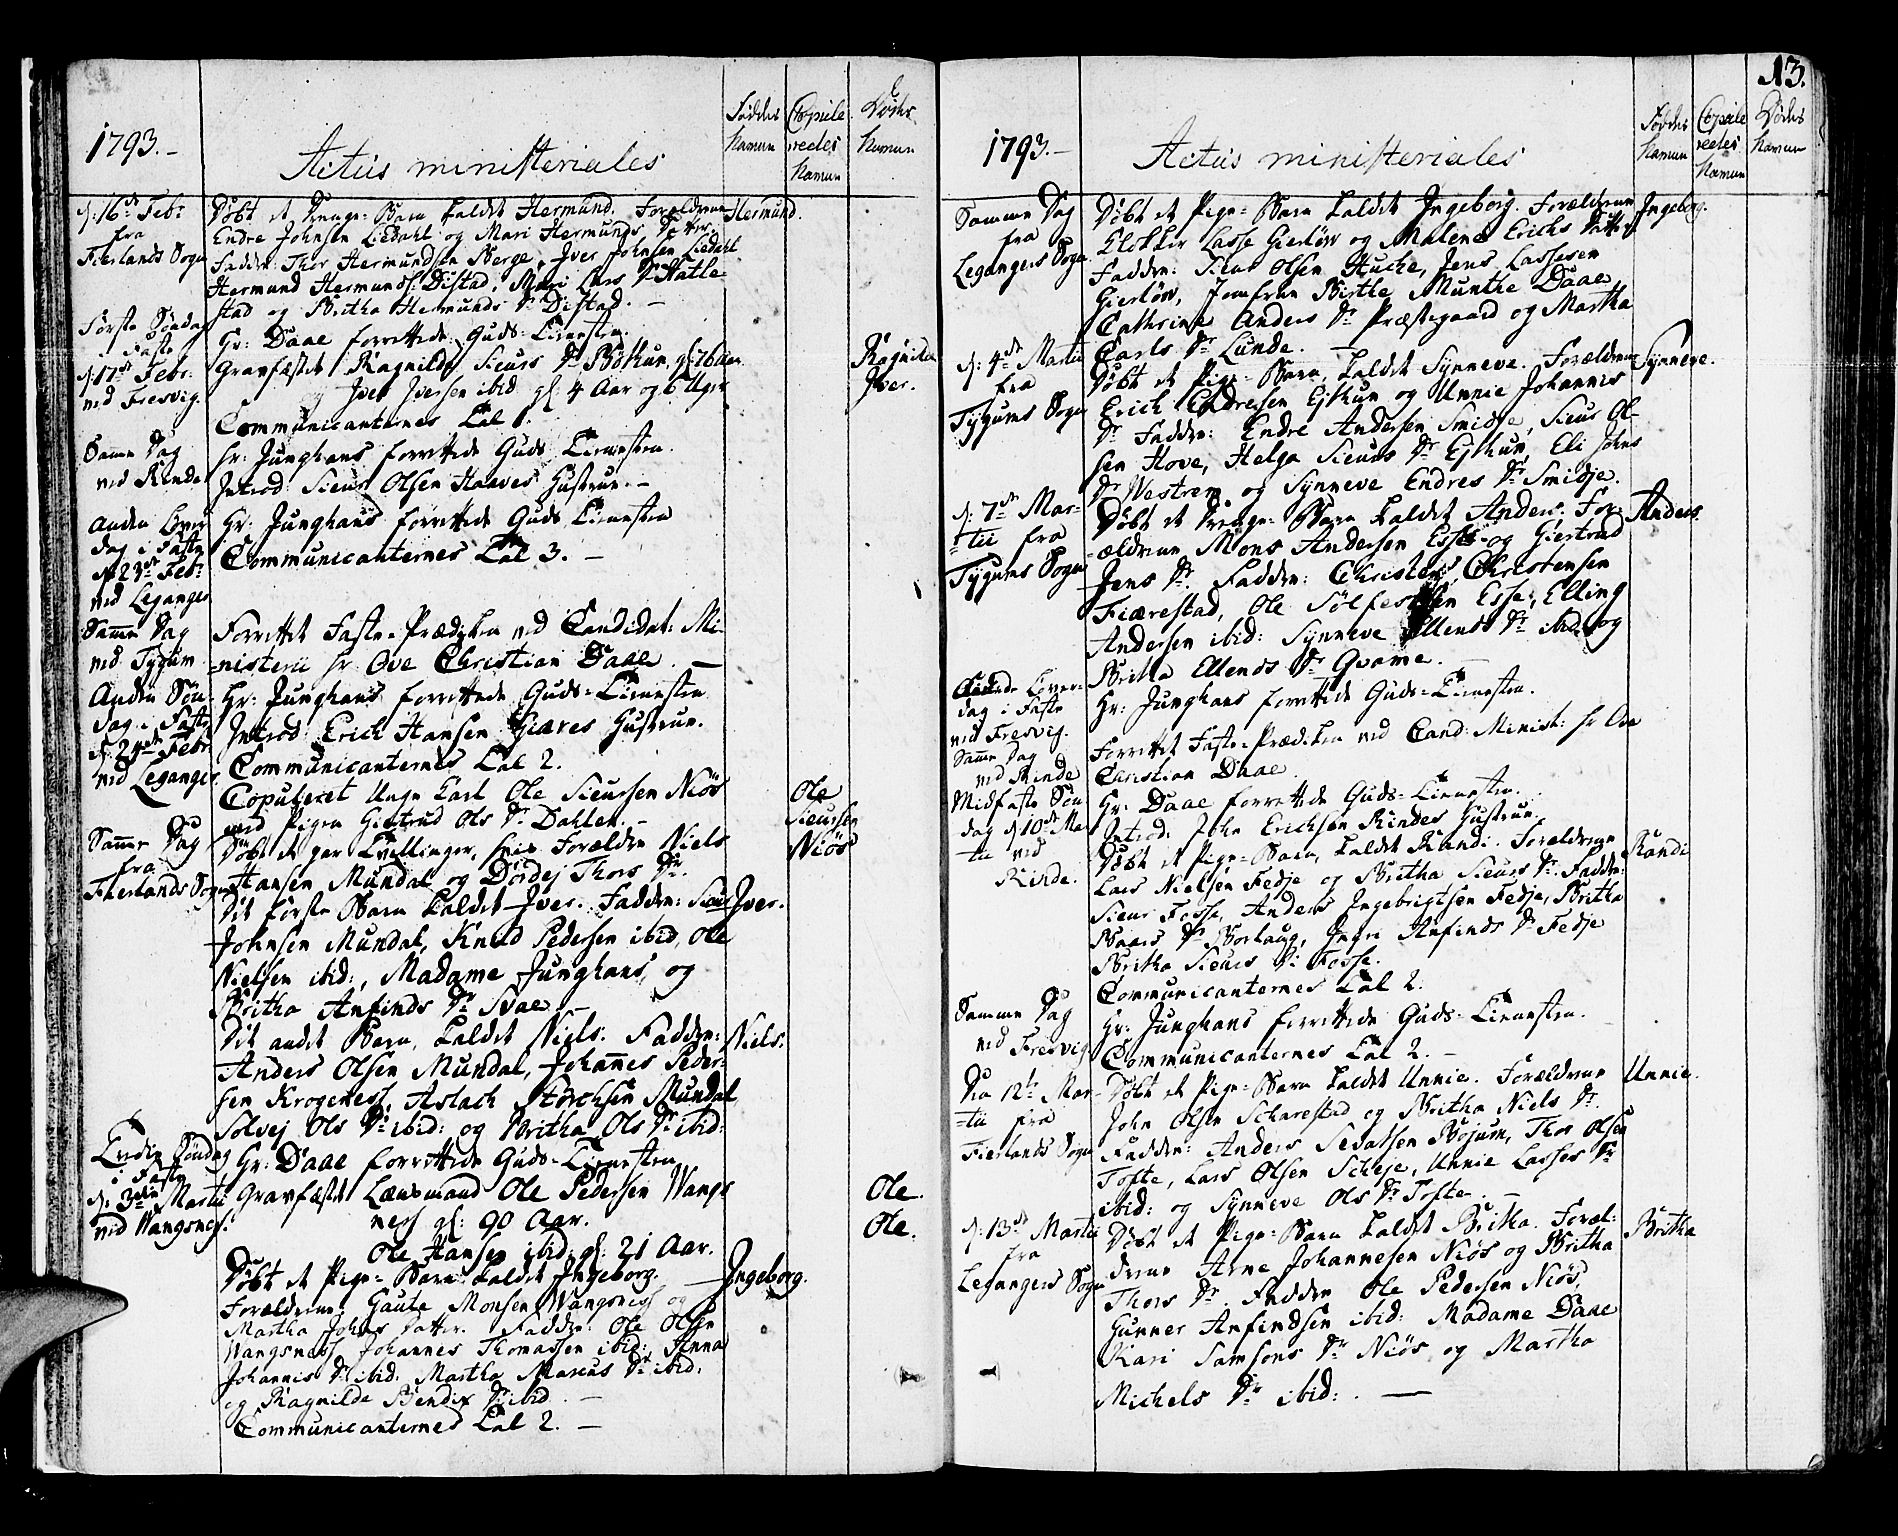 1793.
Actus ministeriales
Fødde Namen
Copuleredes Namen
Dødes Namen
d: 16de Febr
fra
Fierlands Sogn
Døbt et Drenge-Barn kaldet Hermund. Forældrene
Hermund.
Endre Johnsen Liedahl og Mari Hermunds Datter.
Faddere: Thor Hermundsen Berge, Iver Johnsen Liedahl
Hermund Hermunds: Distad, Mari Lars Dr Hatle-
stad og Britha Hermunds Dr Distad. —
Første Søndag
i Faste
d: 17de Febr.
ved Fresvig.
Hr: Daae forrettede Guds-Tienesten.
Gravfæstet Ragnilde Sieurs Dr Bøthun, gl: 76 Aar
Ragnilde
og Iver Iversen ibid gl: 4 Aar og 6 Uger
Iver.
Communicanternes Tal 1.
Samme Dag
ved Rinde
Hr: Junghans forrettede Guds Tienesten.
Introd: Sieur Olsen Haaves Hustrue. —
Anden Løver-
dag i Faste
d: 23de Febr:
ved Leganger
Hr: Junghans forrettede Guds Tienesten
Communicanternes Tal 3. —
Samme Dag
ved Tygum
Forrettet Faste-Prædiken ved Candidat: Mi-
nisterii Hr Ove Christian Daae. —
Anden Søn-
dag i Faste
d: 24de Febr.
ved Leganger.
Hr: Junghans forrettede Guds-Tienesten
Introd: Erich Hansen Hiæres Hustrue.
Communicanternes Tal 2.
Copuleret Unge Karl Ole Sieursen Niøs
Ole
Sieursen
Niøs
med Pigen Giertrud Ols Dr Dahlen. —
Samme Dag
fra
Fierlands Sogn
Døbt et par Tvillinger, hvis Forældre Niels
Hansen Mundal og Dordej Thors Dr.
Det første Barn kaldet Iver. Faddere: Sieur
Iver.
Johnsen Mundal, Knud Pedersen ibid, Ole
Nielsen ibid:, Madame Junghans, og
Britha Anfinds Dr Svae. —
Det andet Barn, kaldet Niels. Faddere:
Niels.
Anders Olsen Mundal, Johannes Peder-
sen Krogeness, Aslach Størchsen Mundal
Solvej Ols Dr ibid: og Britha Ols Dr ibid:
Tredie Søndag
i Faste
d: 3die Martii
ved Wangsness.
Hr: Daae forrettede Guds-Tienesten
Gravfæstet Lænsmand Ole Pedersen Wangs-
Ole.
ness gl: 90 Aar.
Ole.
Ole Hansen ibid: gl: 21 Aar.
Døbt et Pige-Barn kaldet Ingeborg. —
Ingeborg.
Forældrene: Gaute Monsen Wangsness og
Martha Johns Datter. Faddere: Ole Olsen
Wangsness Johannes Thomassen ibid: Anna
Johannis Dr ibid: Martha Marcus Dr ibid:
og Ragnilde Bendix Dr ibid. —
Communicanternes Tal 2. —
13.
1793.
Actus ministeriales
Fødde Namen
Copuleredes Namen
Dødes Namen
Samme Dag
fra
Legangers Sogn
Døbt et Pige-Barn kaldet Ingeborg. Forældrene
Ingeborg.
Klokker Lasse Gierløw og Malene Erichs Datter
Faddere: Sieur Olsen Huche, Jens Lassesen
Gierløw, Jomfrue Birthe Munthe Daae
Cathrine Anders Dr Præstegaard og Martha
Carls Dr Lunde. —
d: 4de Martii
fra
Tygums Sogn
Døbt et Pige-Barn, kaldet Synneve. Forældrene
Synneve.
Erich Endresen Ejthun og Unnie Johannis
Dr Faddere: Endre Andersen Smidje, Sieur Ol-
sen Hove, Helga Sieurs Dr Ejthun, Eli Johns
Dr Westrem og Synneve Endres Dr Smidje.
d: 7de Mar-
tii fra
Tygums Sogn
Døbt et Drenge-Barn kaldet Anders. For-
Anders.
ældrene Mons Andersen Esse og Giertrud
Jens Dr. Faddere: Christen Christensen
Fiærestad, Ole Sølfestsen Esse, Elling
Andersen ibid: Synneve Ellends Dr ibid: og
Britha Ellends Dr Qvame. —
Løver-
dag i Faste
ved Fresvig.
Hr: Junghans forrettede Guds-Tienesten.
Samme Dag
ved Rinde
Forrettet Faste-Prædiken ved Cand: Minist: Hr Ove
Christian Daae.
Midfaste Søn-
dag d: 10de Mar-
tii ved
Rinde.
Hr: Daae forrettede Guds-Tienesten.
Introd: John Erichsen Rindes Hustrue.
Døbt et Pige-Barn, kaldet Randi. Forældrene
Randi
Lars Nielsen Fedje og Britha Sieurs Dr. Faddere:
Sieur Fosse, Anders Ingebrigtsen Fedje, Britha
Baars Dr Borlaug, Ingri Anfinds Dr Fedje
Britha Sieurs Dr Fosse.
Communicanternes Tal 2.
Samme Dag
ved Fresvig
Hr: Junghans forrettede Guds-Tienesten.
Communicanternes Tal 2. —
Dn 12te Mar-
tii fra
Fierlands Sogn
Døbt et Pige-Barn kaldet Unnie. Forældrene
Unnie.
John Olsen Scharestad og Britha Niels Dr.
Faddere: Anders Sevatsen Bojum, Thor Olsen
Tofte, Lars Olsen Scheje, Unnie Lasses Dr
ibid: og Synneve Ols Dr Tofte. —
d: 13de Martii
fra
Legangers Sogn
Døbt et Pige-Barn kaldet Britha. Foræl-
Britha
drene Arne Johannesen Niøs og Britha
Thors Dr. Faddere Ole Pedersen Niøs,
Gunner Anfindsen ibid: Madame Daae
Kari Samsons Dr Niøs og Martha
Michels Dr ibid: . —